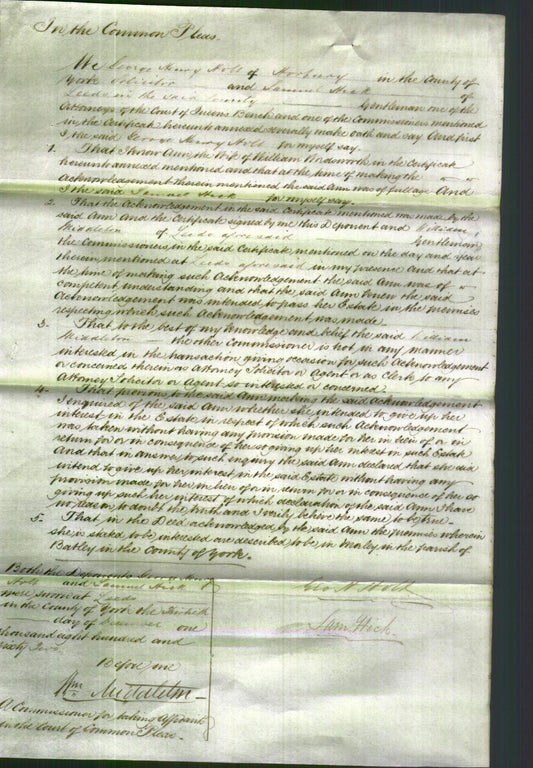 In the Common Pleas.
We George Henry Holt of Horbury in the County of
York Solicitor and Samuel Hick of
Leeds in the said County Gentleman one of the
Attorneys of the Court of Queens Bench and one of the Commissioners mentioned
in the Certificate hereunto annexed severally make oath and say And first
I the said George Henry Holt for myself say.
1. That I know Ann the Wife of William in the Certificate
hereunto annexed mentioned and that at the time of making the
Acknowledgement therein mentioned the said Ann was of full age. And
I the said Samuel Hick for myself say.
2. That the Acknowledgement in the said Certificate mentioned was made by the
said Ann and the Certificate signed by me this Deponent and William
Middleton of Leeds aforesaid Gentleman
the Commissioners in the said Certificate mentioned on the day and year
therein mentioned at Leeds aforesaid in my presence And that at
the time of making such Acknowledgement the said Ann was of
competent understanding and that the said Ann knew the said
Acknowledgement was intended to pass her Estate in the premises
respecting which such Acknowledgement was made.
3. That to the best of my knowledge and belief the said William
Middleton the other Commissioner is not in any manner
interested in the transaction giving occasion for such Acknowledgement
or concerned therein as Attorney Solicitor or Agent or as Clerk to any
Attorney Solicitor or Agent so interested or concerned.
4. That previous to the said Ann making the said Acknowledgement
I enquired of the said Ann whether she intended to give up her
interest in the Estate in respect of which such Acknowledgement
was taken without having any provision made for her in lieu of or in
return for or in consequence of her so giving up her interest in such Estate
And that in answer to such enquiry the said Ann declared that she did
intend to give up her interest in the said Estate without having any
provision made for her in lieu of or in return for or in consequence of her so
giving up such her interest of which declaration of the said Ann I have
no reason to doubt the truth and I verily believe the same to be true.
5. That in the Deed acknowledged by the said Ann the premises wherein
she is stated to be interested are described to be in Morley in the parish of
Batley in the County of York.
Both the Deponents George Henry
Holt and Samuel Hick
were sworn at Leeds
in the County of York the
day of December one
thousand eight hundred and
sixty two.
Before me
Wm Middleton
A Commissioner for taking Affidavits
in the Court of Common Pleas.
Geo H Holt
Sam Hick.